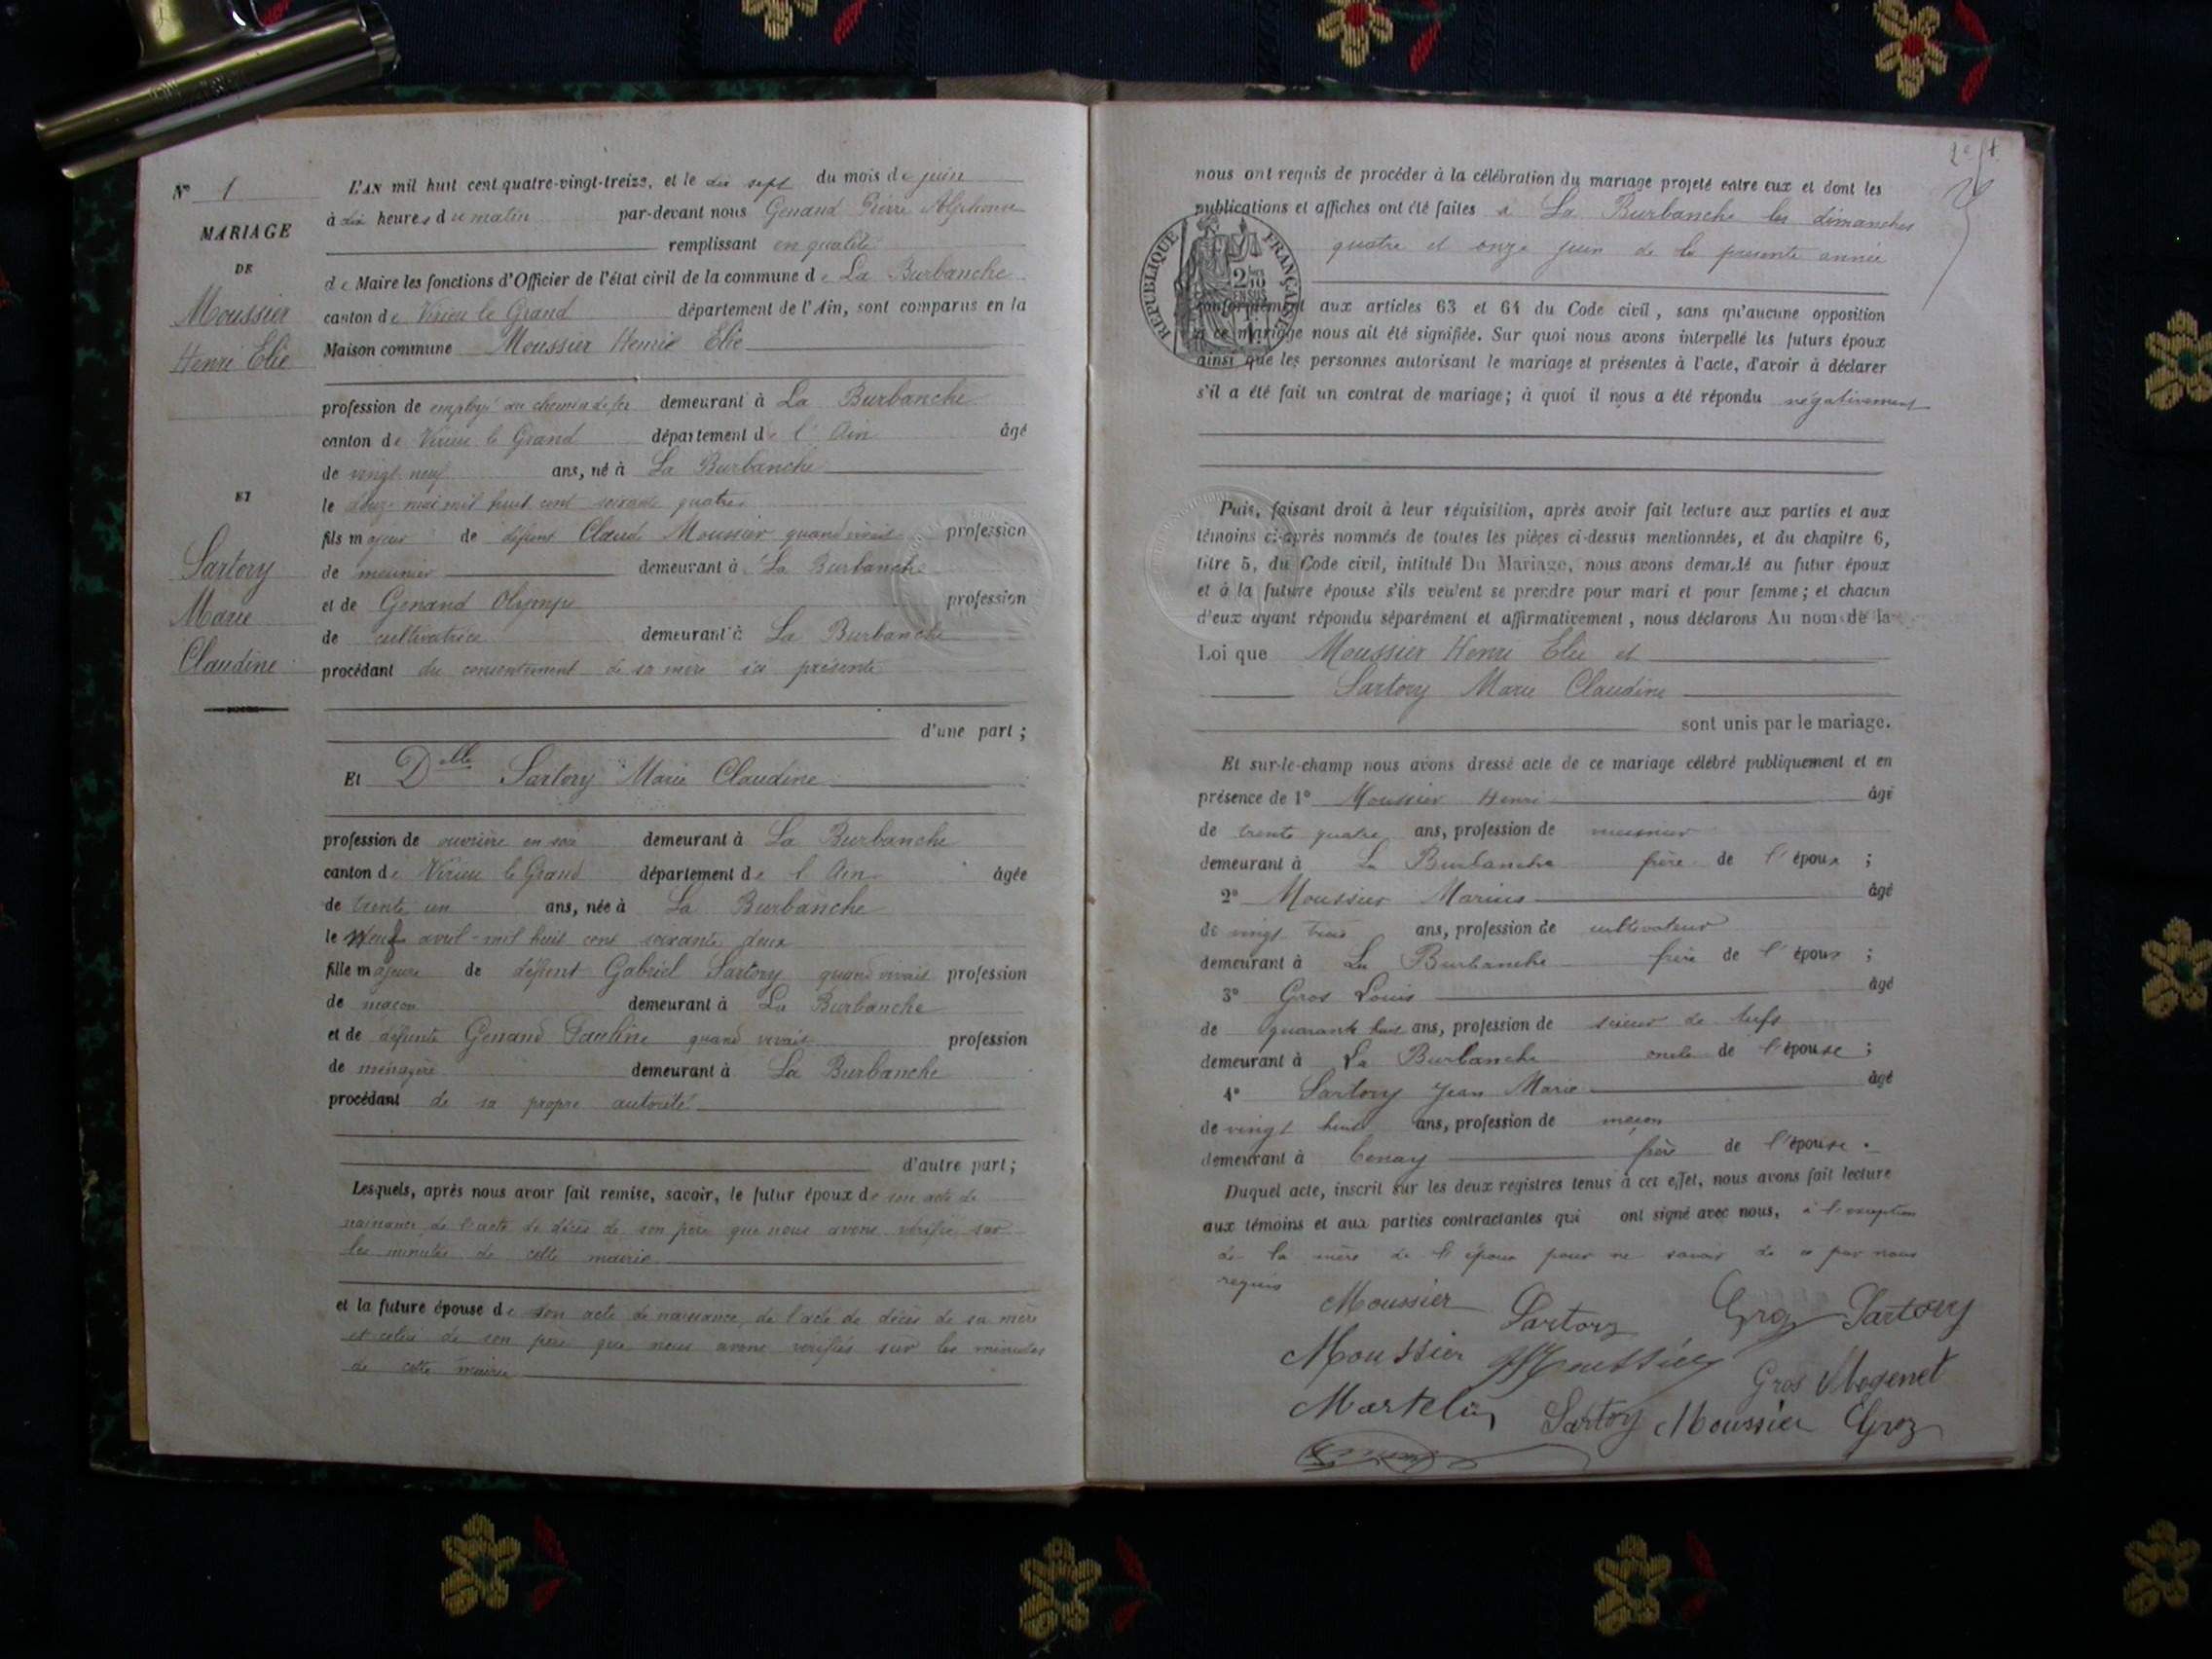 N° 1
MARIAGE
DE
Moussier
Henri Elie
ET
Sartory
Marie
Claudine
L'AN mil huit cent quatre-vingt-treize, et le dix sept du mois de juin
à dix heures du matin par-devant nous Genand Pierre Alphonse
remplissant en qualité
de Maire les fonctions d'Officier de l'état civil de la commune de La Burbanche
canton de Virieu le Grand département de l'Ain, sont comparus en la
Maison commune Moussier Henri Elie
profession de employé au chemin de fer demeurant à La Burbanche
canton de Virieu le Grand département de l'Ain âgé
de vingt neuf ans, né à La Burbanche
le douze mai mil huit cent soixante quatre
fils majeur de défunt Claude Moussier quand vivait profession
de meunier demeurant à La Burbanche
et de Genand Olympe profession
de cultivatrice demeurant à La Burbanche
procédant du consentement de sa mère ici présente
d'une part ;
Et Delle Sartory Marie Claudine
profession de ouvrière en soie demeurant à La Burbanche
canton de Virieu le Grand département de l'Ain âgée
de trente un ans, née à La Burbanche
le neuf avril mil huit cent soixante deux
fille majeure de défunt Gabriel Sartory quand vivait profession
de maçon demeurant à La Burbanche
et de défunte Genand Pauline quand vivait profession
de ménagère demeurant à La Burbanche
procédant de sa propre autorité
d'autre part ;
Lesquels, après nous avoir fait remise, savoir, le futur époux de son acte de
naissance, de l'acte de décès de son père que nous avons vérifié sur
les minutes de cette mairie
et la future épouse de son acte de naissance, de l'acte de décès de sa mère
et celui de son père que nous avons vérifiés sur les minutes
de cette mairie
nous ont requis de procéder à la célébration du mariage projeté entre eux et dont les
publications et affiches ont été faites à La Burbanche les dimanches
quatre et onze juin de la présente année
RÉPUBLIQUE FRANÇAISE
conformément aux articles 63 et 64 du Code civil, sans qu'aucune opposition
à ce mariage nous ait été signifiée. Sur quoi nous avons interpellé les futurs époux
ainsi que les personnes autorisant le mariage et présentes à l'acte, d'avoir à déclarer
s'il a été fait un contrat de mariage ; à quoi il nous a été répondu négativement
Puis, faisant droit à leur réquisition, après avoir fait lecture aux parties et aux
témoins ci-après nommés de toutes les pièces ci-dessus mentionnées, et du chapitre 6,
titre 5, du Code civil, intitulé Du Mariage, nous avons demandé au futur époux
et à la future épouse s'ils veulent se prendre pour mari et pour femme ; et chacun
d'eux ayant répondu séparément et affirmativement, nous déclarons Au nom de la
Loi que Moussier Henri Elie et
Sartory Marie Claudine
sont unis par le mariage.
Et sur-le-champ nous avons dressé acte de ce mariage célébré publiquement et en
présence de 1° Moussier Henri âgé
de trente quatre ans, profession de meunier
demeurant à La Burbanche frère de l'époux ;
2° Moussier Marius âgé
de vingt trois ans, profession de cultivateur
demeurant à La Burbanche frère de l'époux ;
3° Gros Louis âgé
de quarante huit ans, profession de scieur de tufs
demeurant à La Burbanche oncle de l'épouse ;
4° Sartory Jean Marie âgé
de vingt huit ans, profession de maçon
demeurant à Tenay frère de l'épouse.
Duquel acte, inscrit sur les deux registres tenus à cet effet, nous avons fait lecture
aux témoins et aux parties contractantes qui ont signé avec nous, à l'exception
de la mère de l'époux pour ne savoir de ce par nous
requis
Moussier Sartory Groz Sartory
Moussier Moussier Gros Mogenet
Martelin Sartory Moussier Groz